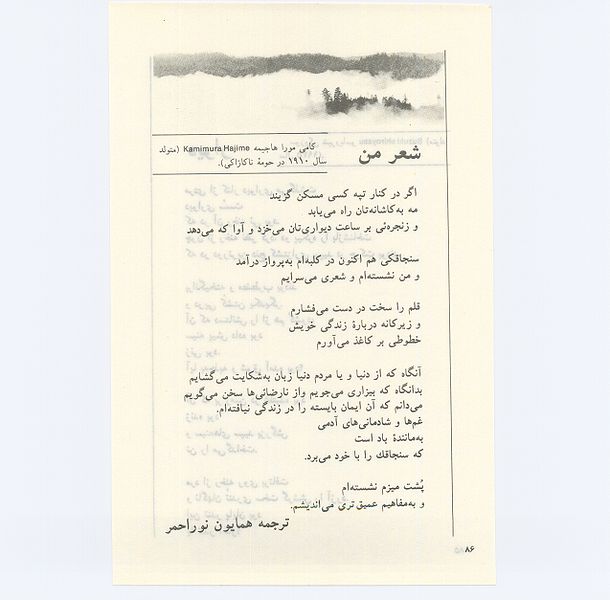 شعر من
کامی مورا هاجیمه Kamimura Hajime (متولد
سال ۱۹۱۰ در حومهٔ ناکازاکی).
اگر در کنار تپه کسی مسکن گزیند
مه به‌کاشانه‌تان راه می‌یابد
و زنجره‌ئی بر ساعت دیواری‌تان می‌خزد و آوا که می‌دهد
سنجاقکی هم اکنون در کلبه‌ام به‌پرواز درآمد
و من نشسته‌ام و شعری می‌سرایم
قلم را سخت در دست می‌فشارم
و زیرکانه دربارهٔ زندگی خویش
خطوطی بر کاغذ می‌آورم
آنگاه که از دنیا و یا مردم دنیا زبان به‌شکایت می‌گشایم
بدانگاه که بیزاری می‌جویم واز نارضائی‌ها سخن می‌گویم
می‌دانم که آن ایمان بایسته را در زندگی نیافته‌ام.
غم‌ها و شادمانی‌های آدمی
به‌مانندهٔ باد است
که سنجاقك را با خود می‌برد.
پُشت میزم نشسته‌ام
و به‌مفاهیم عمیق‌تری می‌اندیشم.
ترجمه همایون نوراحمر
۸۶